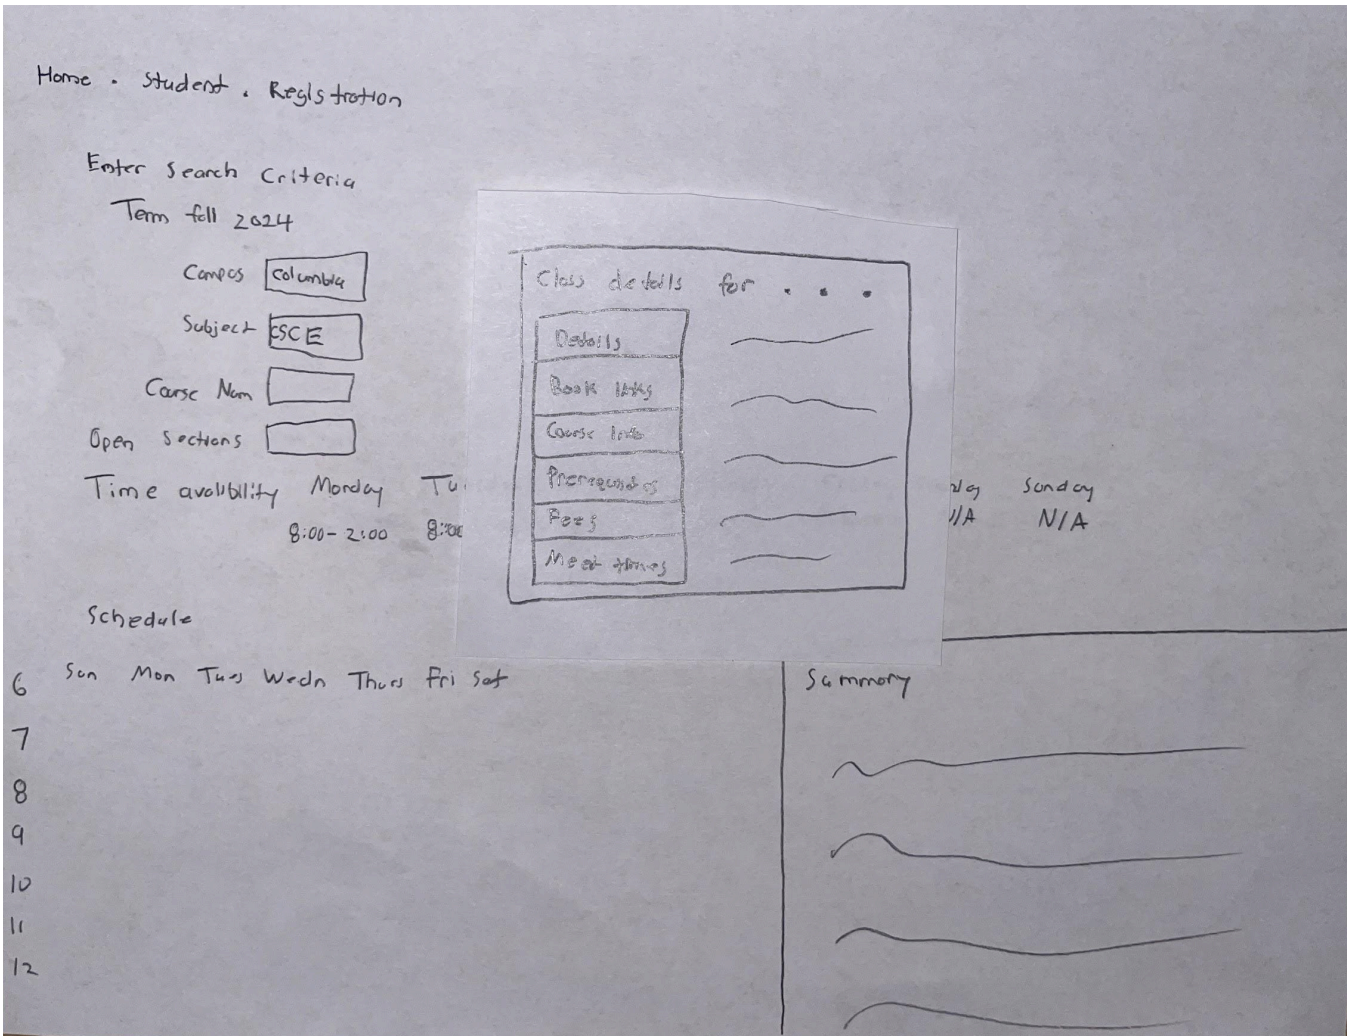 Home . Student . Registration
Enter Search Criteria
Term fall 2024
Campus Columbia
Subject CSCE
Course Num
Open Sections
Time avalibility Monday Sunday
8:00 - 2:00 8:00 N/A N/A
Class details for . . .
Details
Book links
Course Info
Prerequisites
Fees
Meet times
Schedule
Sun Mon Tues Wedn Thurs Fri Sat
6
7
8
9
10
11
12
Summary